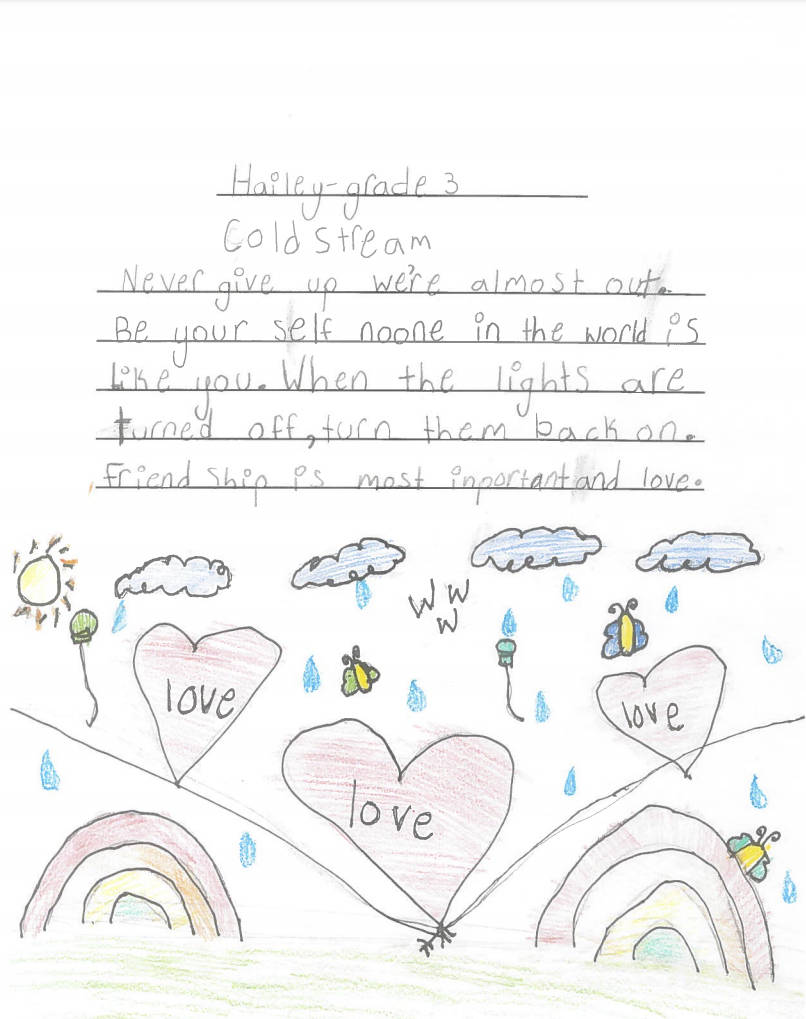 Hailey-grade 3
Cold stream
Never give up we're almost out.
Be your self noone in the world is
like you. When the lights are
turned off, turn them back on.
friend ship is most inportant and love.
W W
W
love
love
love